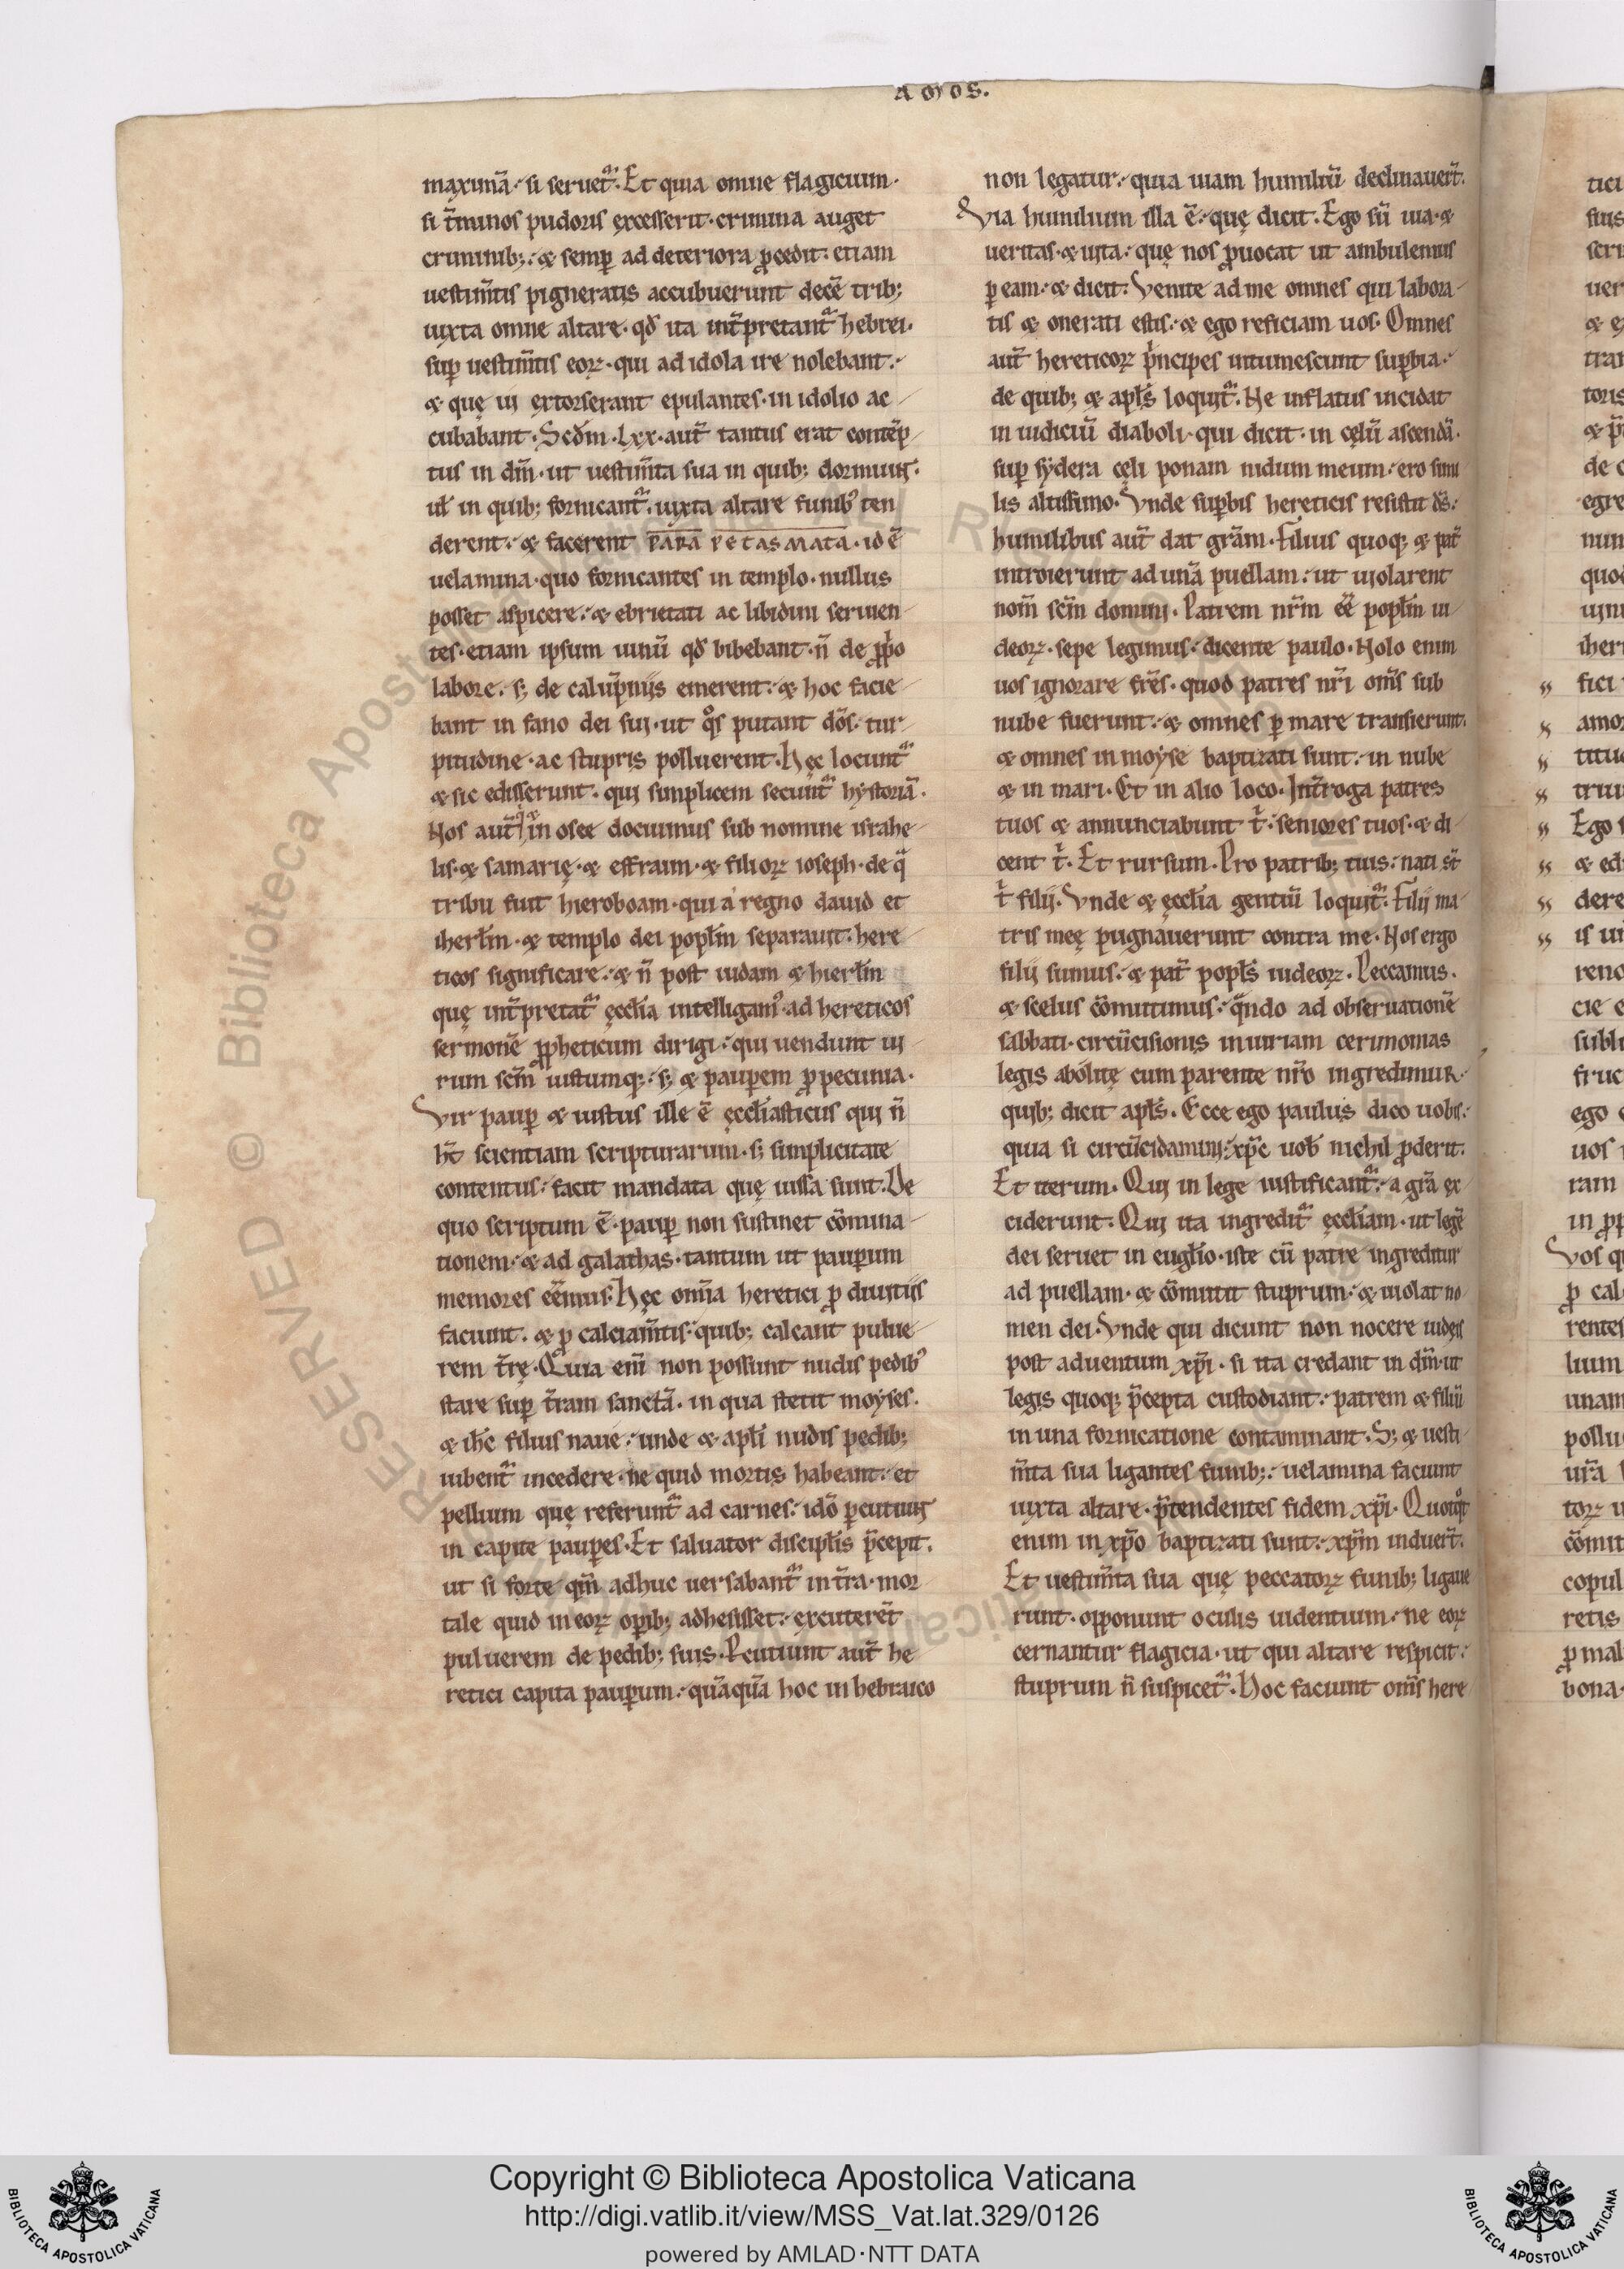 AMOS.
maximā· si seruet᷑· Et quia omne flagicium·
si t̄minos pudoris excesserit· crimina auget
criminib;· & semꝑ ad deteriora ꝓcedit· etiam
uestim̄tis pigneratis accubuerunt decē trib;
iuxta omne altare· qđ ita int̄pretant᷑ hebrei·
suꝑ uestim̄tis eoꝝ· qui ad idola ire nolebant·
& quę ui extorserant epulantes· in idolio ac
cubabant· Scđm· lxx· aut̄ tantus erat contēp
tus in dm̄· ut uestim̄ta sua in quib; dormiunt·
ul̄ in quib; fornicant᷑· iuxta altare funibꝰ ten
derent· & facerent PARA PETASMATA· id ē
uelamina· quo fornicantes in templo· nullus
posset aspicere· & ebrietati ac libidini seruien
tes· etiam ipsum uinū qđ bibebant· n̄ de ꝓpͥo
labore· s; de calūpniis emerent· & hoc facie
bant in fano dei sui· ut qͦs putant dōs· tur
pitudine· ac stupris polluerent· Hęc locunt᷑
& sic edisserunt· qui simplicem secunt᷑ hystoriā·
Nos aut̄ in osee docuimus sub nomine israhe
lis· & samarię· & effraim· & filioꝝ ioseph· de qͣ
tribu fuit hieroboam· qui a regno dauid et
iherl̄m· & templo dei popl̄m separauit· here
ticos significare· & n̄ post iudam & hierl̄m
quę int̄pretat᷑ ęccl̄ia intelligamꝰ· ad hereticos
sermonē ꝓpheticum dirigi· qui uendunt ui
rum scm̄ iustumq;· s; & pauꝑem ꝓ pecunia·
Vir pauꝑ & iustus ille ē ęccl̄iasticus qui n̄
ht̄ scientiam scripturarum· s; simplicitate
contentus· facit mandata quę iussa sunt· De
quo scriptum ē· pauꝑ non sustinet cōmina
tionem· & ad galathas· tantum ut pauꝑum
memores eēmus· Hęc om̄ia heretici ꝓ diuitiis
faciunt· & ꝓ calciam̄tis· quib; calcant pulue
rem t̄rę· Quia em̄ non possunt nudis pedibꝰ
stare suꝑ t̄ram sanctā· in qua stetit moyses·
& ih̄c filius naue· unde & apl̄i nudis pedib;
iubent᷑ incedere· ne quid mortis habeant· et
pellium quę referunt᷑ ad carnes· idō ꝑcutiunt
in capite pauꝑes· Et saluator discipl̄is p̄cepit·
ut si forte qm̄ adhuc uersabant᷑ in t̄ra· mor
tale quid in eoꝝ oꝑib; adhesisset· excuterēt
puluerem de pedib; suis· Ꝑcutiunt aut̄ he
retici capita pauꝑum· quāquā hoc in hebraico
non legatur· quia uiam humiliū declinauer̄t·
Via humilium illa ē· quę dicit· Ego sū uia· &
ueritas· & uita· quę nos ꝓuocat ut ambulemus
ꝑ eam· & dicit· Venite ad me omnes qui labora
tis & onerati estis· & ego reficiam uos· Omnes
aut̄ hereticoꝝ pͥncipes intumescunt suꝑbia·
de quib; & apl̄s loquit᷑· Ne inflatus incidat
in iudiciū diaboli· qui dicit· in cęlū ascendā·
suꝑ sydera cęli ponam nidum meum· ero simi
lis altissimo· Vnde suꝑbis hereticis resistit ds̄·
humilibus aut̄ dat grām· Filius quoq; & pat̄
introierunt ad unā puellam· ut uiolarent
nom̄ scm̄ domini· Patrem nr̄m eē popl̄m iu
deoꝝ· sepe legimus· dicente paulo· Nolo enim
uos ignorare frēs· quod patres nr̄i om̄s sub
nube fuerunt· & omnes ꝑ mare transierunt·
& omnes in moyse baptizati sunt· in nube
& in mari· Et in alio loco· Int̄roga patres
tuos & annunciabunt tͥ· seniores tuos· & di
cent tͥ· Et rursum· Pro patrib; tuis· nati st̄
tͥ filii· Vnde & ęccl̄ia gentiū loquit᷑· Filii ma
tris meę pugnauerunt contra me· Nos ergo
filii sumus· & pat̄ popl̄s iudeoꝝ· Peccamus·
& scelus cōmittimus· qͣndo ad obseruationē
sabbati· circūcisionis iniuriam cerimonias
legis abolitę cum parente nr̄o ingredimur·
quib; dicit apl̄s· Ecce ego paulus dico uobis·
quia si circūcidamini· xp̄c uob̄ nichil ꝓderit·
Et iterum· Qui in lege iustificant᷑· a grā ex
ciderunt· Qui ita ingredit᷑ ęccl̄iam· ut legē
dei seruet in eugl̄io· iste cū patre ingreditur
ad puellam· & cōmittit stuprum· & uiolat no
men dei· Vnde qui dicunt non nocere iudeis
post aduentum xp̄i· si ita credant in dm̄· ut
legis quoq; p̄cepta custodiant· patrem & filiū
in una fornicatione contaminant· S; & uesti
m̄ta sua ligantes funib;· uelamina faciunt
iuxta altare· p̄tendentes fidem xp̄i· Quotqͦt
enim in xp̄o baptizati sunt· xp̄m induer̄t·
Et uestim̄ta sua quę peccatoꝝ funib; ligaue
runt· opponunt oculis uidentium· ne eoꝝ
cernantur flagicia· ut qui altare respicit·
stuprum n̄ suspicet᷑· Hoc faciunt om̄s here
Copyright © Biblioteca Apostolica Vaticana
http://digi.vatlib.it/view/MSS_Vat.lat.329/0126
powered by AMLAD·NTT DATA